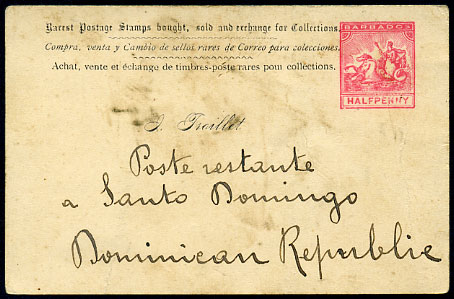 Rarest Postage Stamps bought, sold and exchange for Collections.
Compra, venta y Cambio de sellos rares de Correo para colecciones.
Achat, vente et échange de timbres-poste rares pour collections.
BARBADOS
HALFPENNY
J. Treillet
Poste restante
a Santo Domingo
Dominican Republic